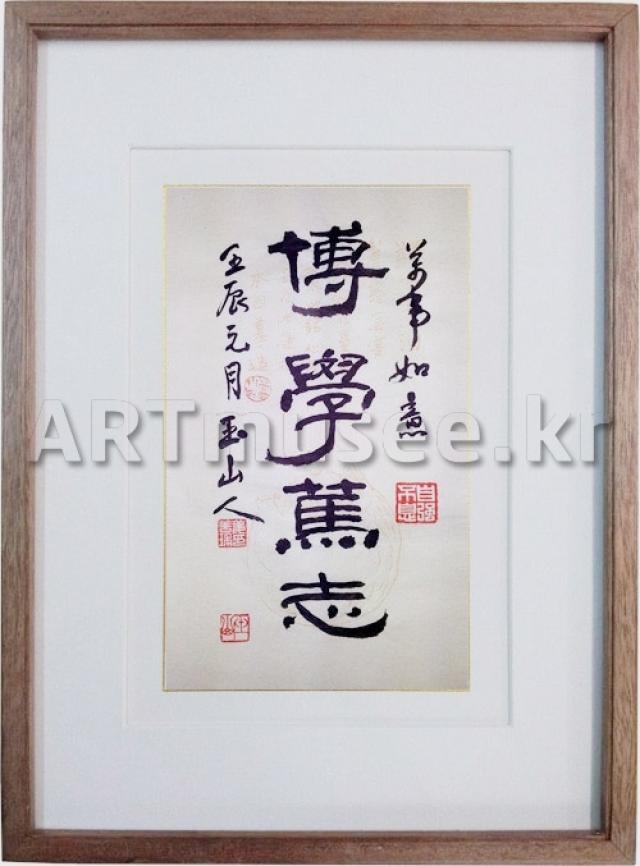 萬事如意
自强不息
博學篤志
壬辰元月 玉山人
ARTmusee.kr